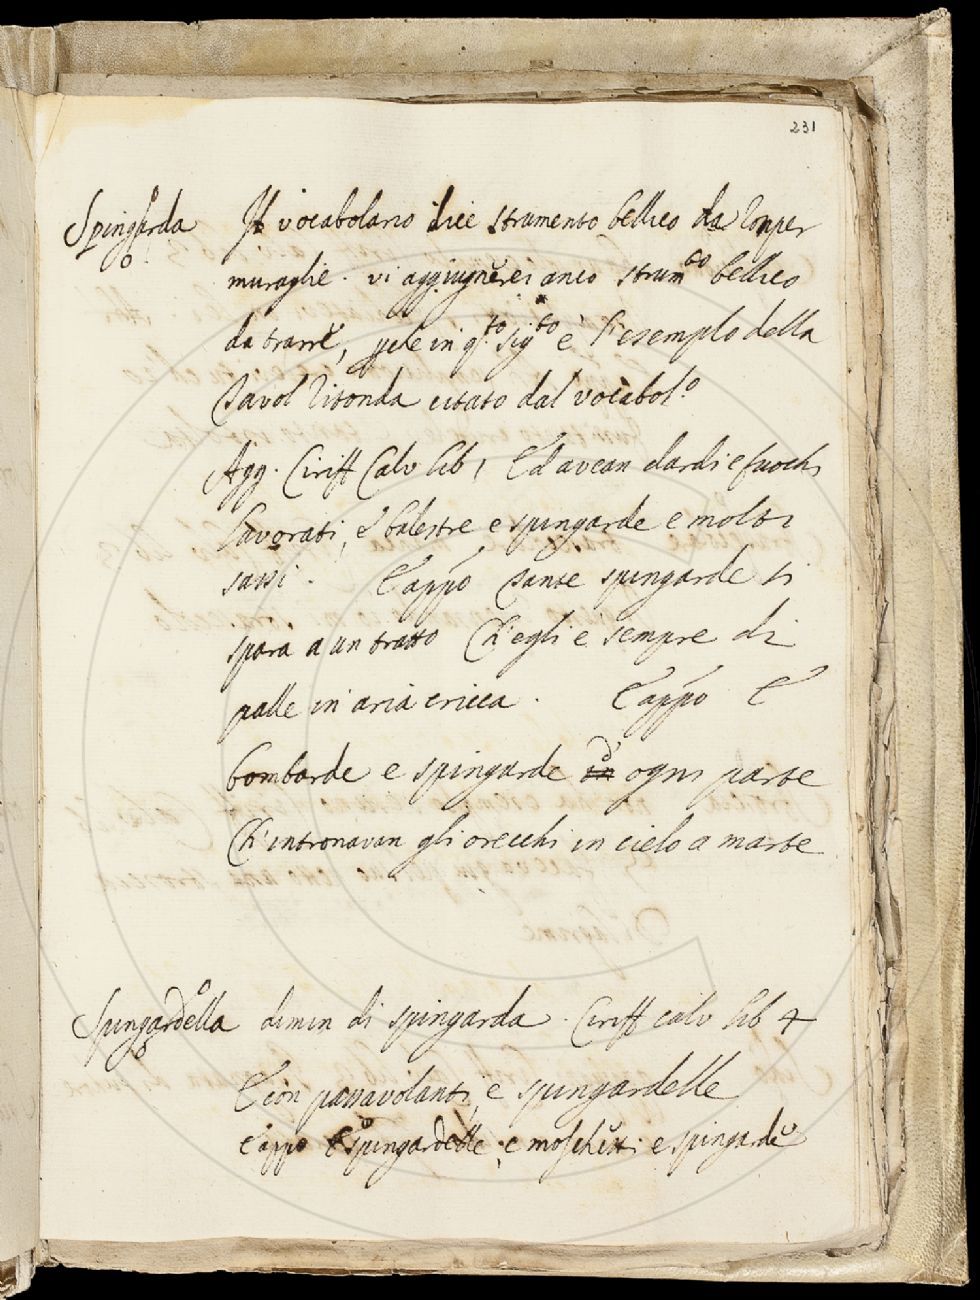 231
Spingarda Il vocabolario dice strumento bellico da romper
muraglie. vi aggiugnerei anco strum.to bellico
da trarre, che in q.to sig.to è l'esemplo della
Tavol Ritonda citato dal vocabol.o
Agg. Ciriff Calv lib 1 Ed avean dardi e fuochi
lavorati, e balestre e spingarde e molti
sassi. E app.o Tante spingarde si
spara a un tratto Ch'egli e sempre di
palle in aria cricca. E app.o E
bombarde e spingarde d' ogni parte
Ch'intronavan gli orecchi in cielo a marte
Spingardella dimin di spingarda. Ciriff calv lib 4
E con passavolanti, e spingardelle
E appo E spingardelle, e moschetti e spingarde